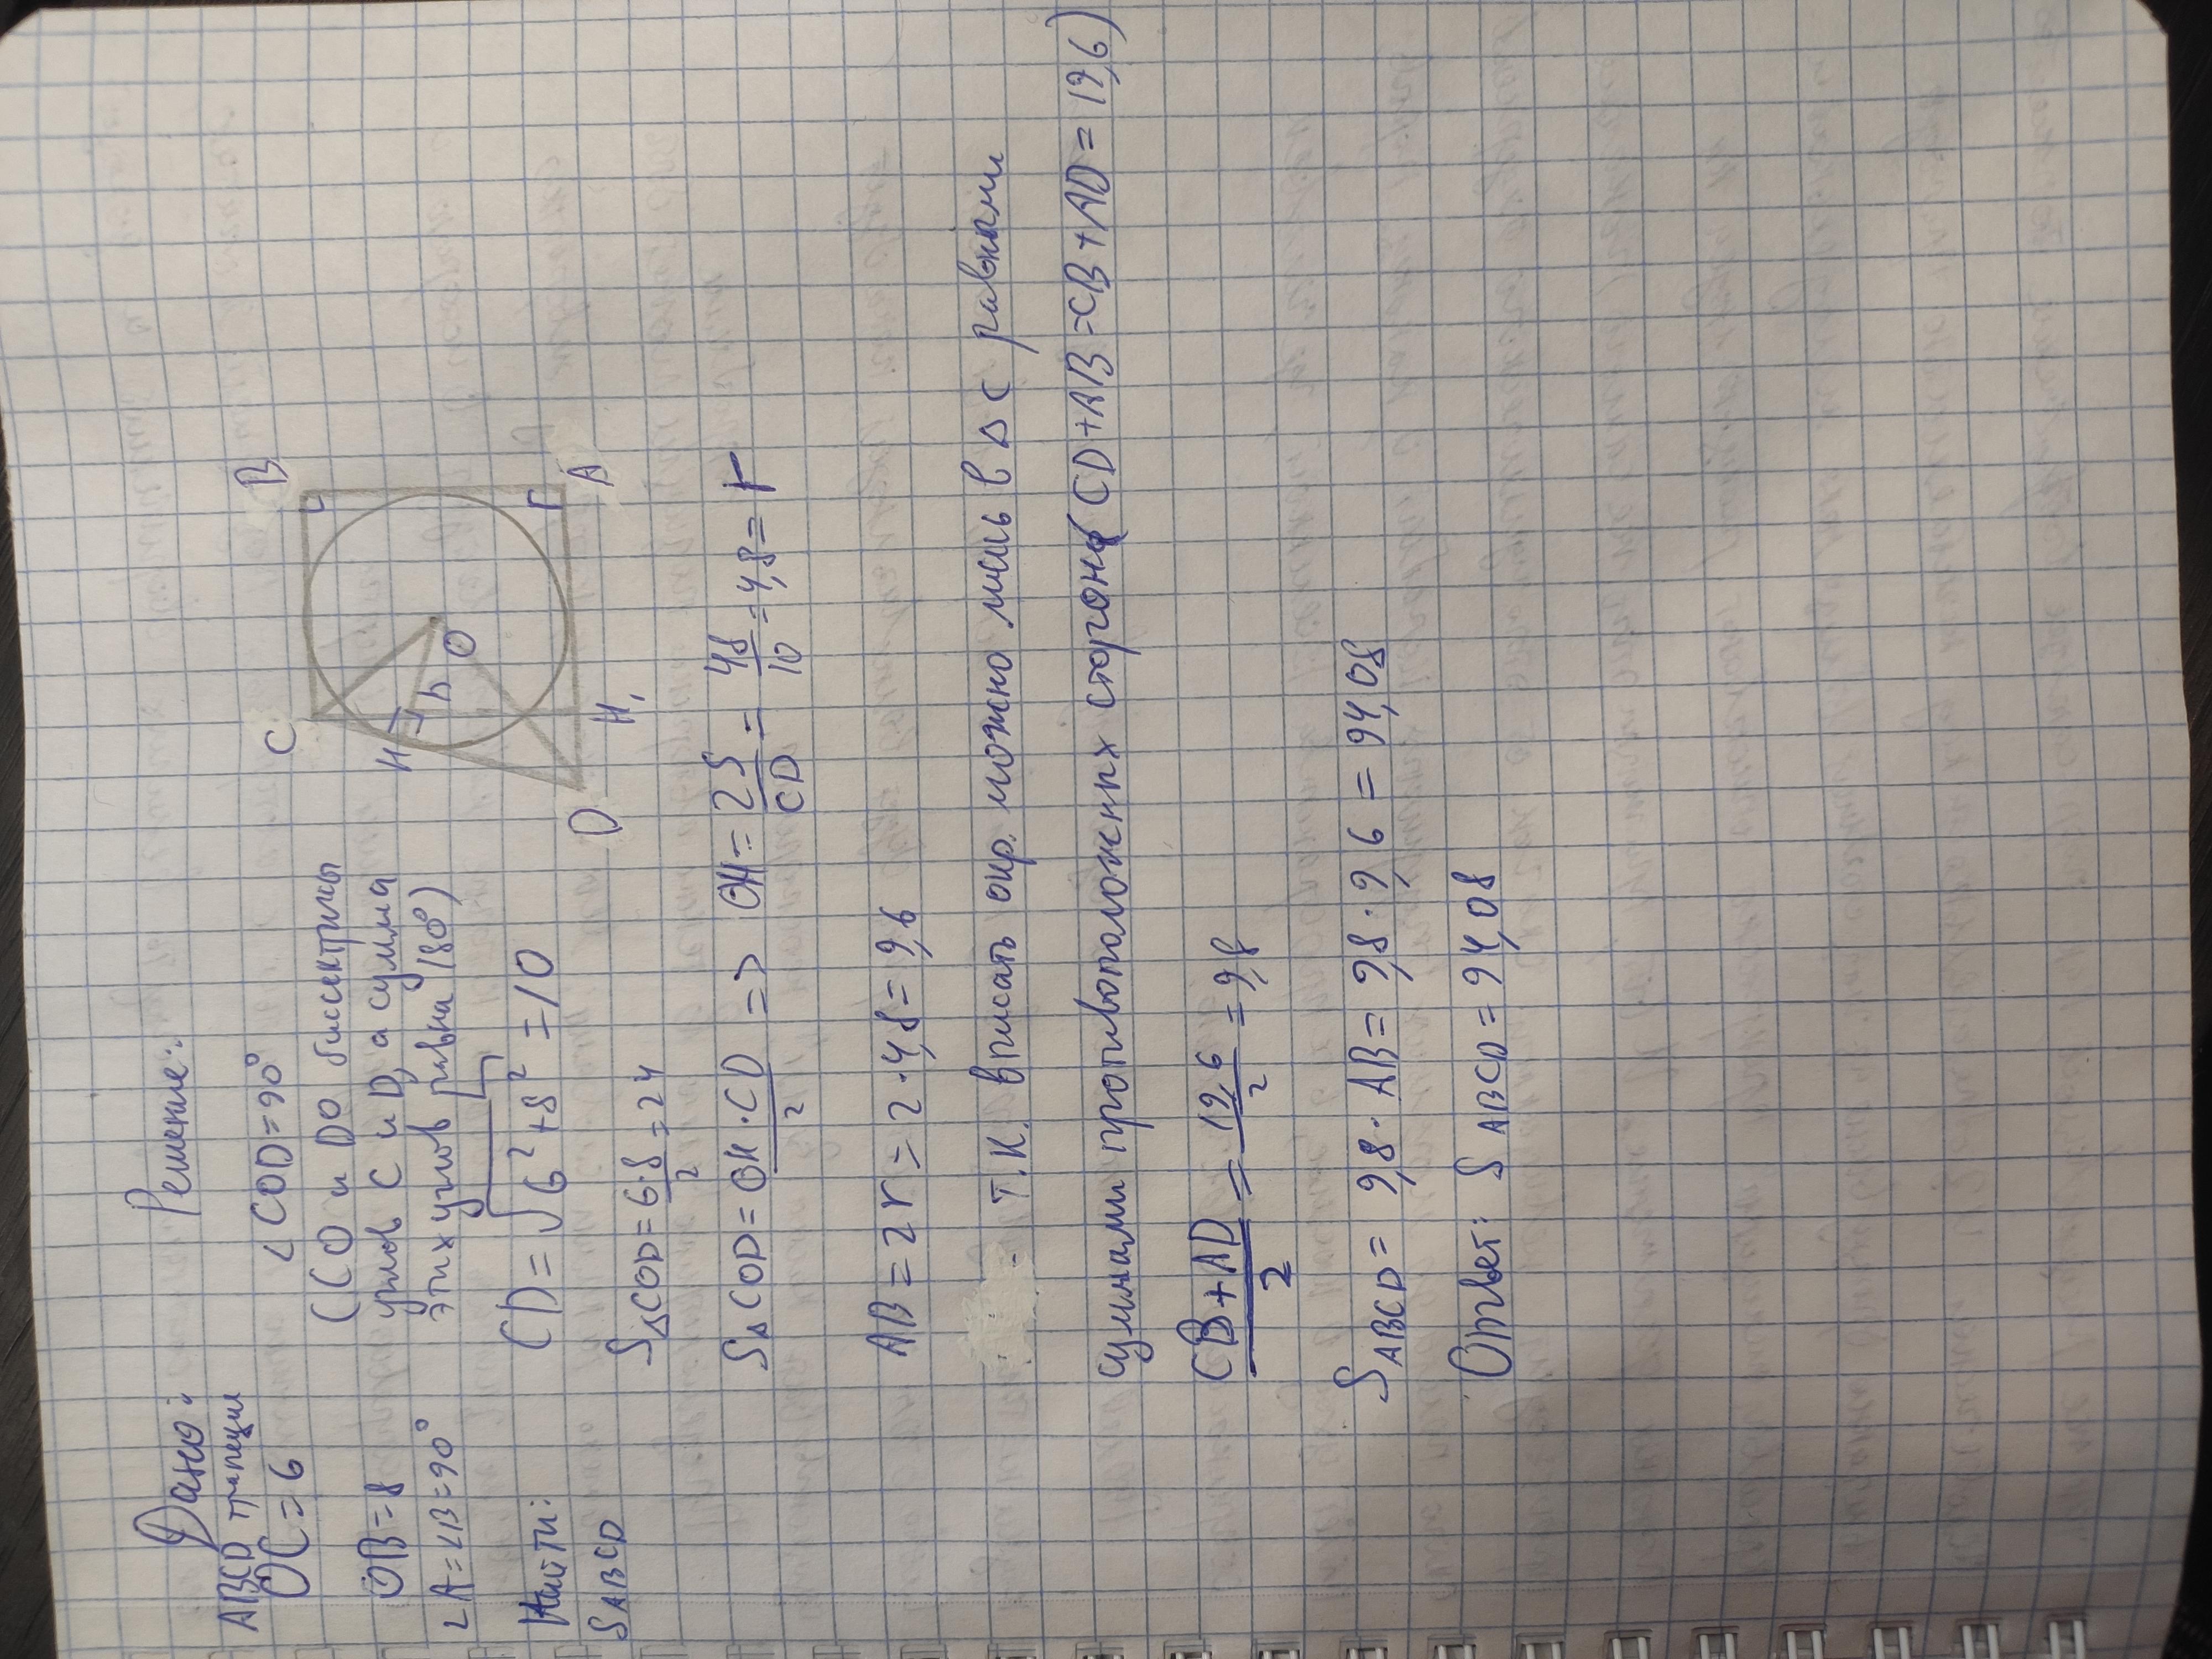 Дано:
ABCD трапеция
OC = 6
OB = 8
∠A = ∠B = 90°
Найти:
S ABCD
Решение:
∠COD = 90°
(CO и DO биссектрисы
углов C и D, а сумма
этих углов равна 180°)
CD = √6² + 8² = 10
S△COD = 6·8/2 = 24
S△COD = OH·CD/2 => OH = 2S/CD = 48/10 = 4,8 = r
AB = 2r = 2·4,8 = 9,6
т.к. вписать окр. можно лишь в △ с равными
суммами противоположных сторон (CD + AB = CB + AD = 19,6)
CB + AD/2 = 19,6/2 = 9,8
S ABCD = 9,8 · AB = 9,8 · 9,6 = 94,08
Ответ: S ABCD = 94,08
C
B
H
h
O
D
H₁
A